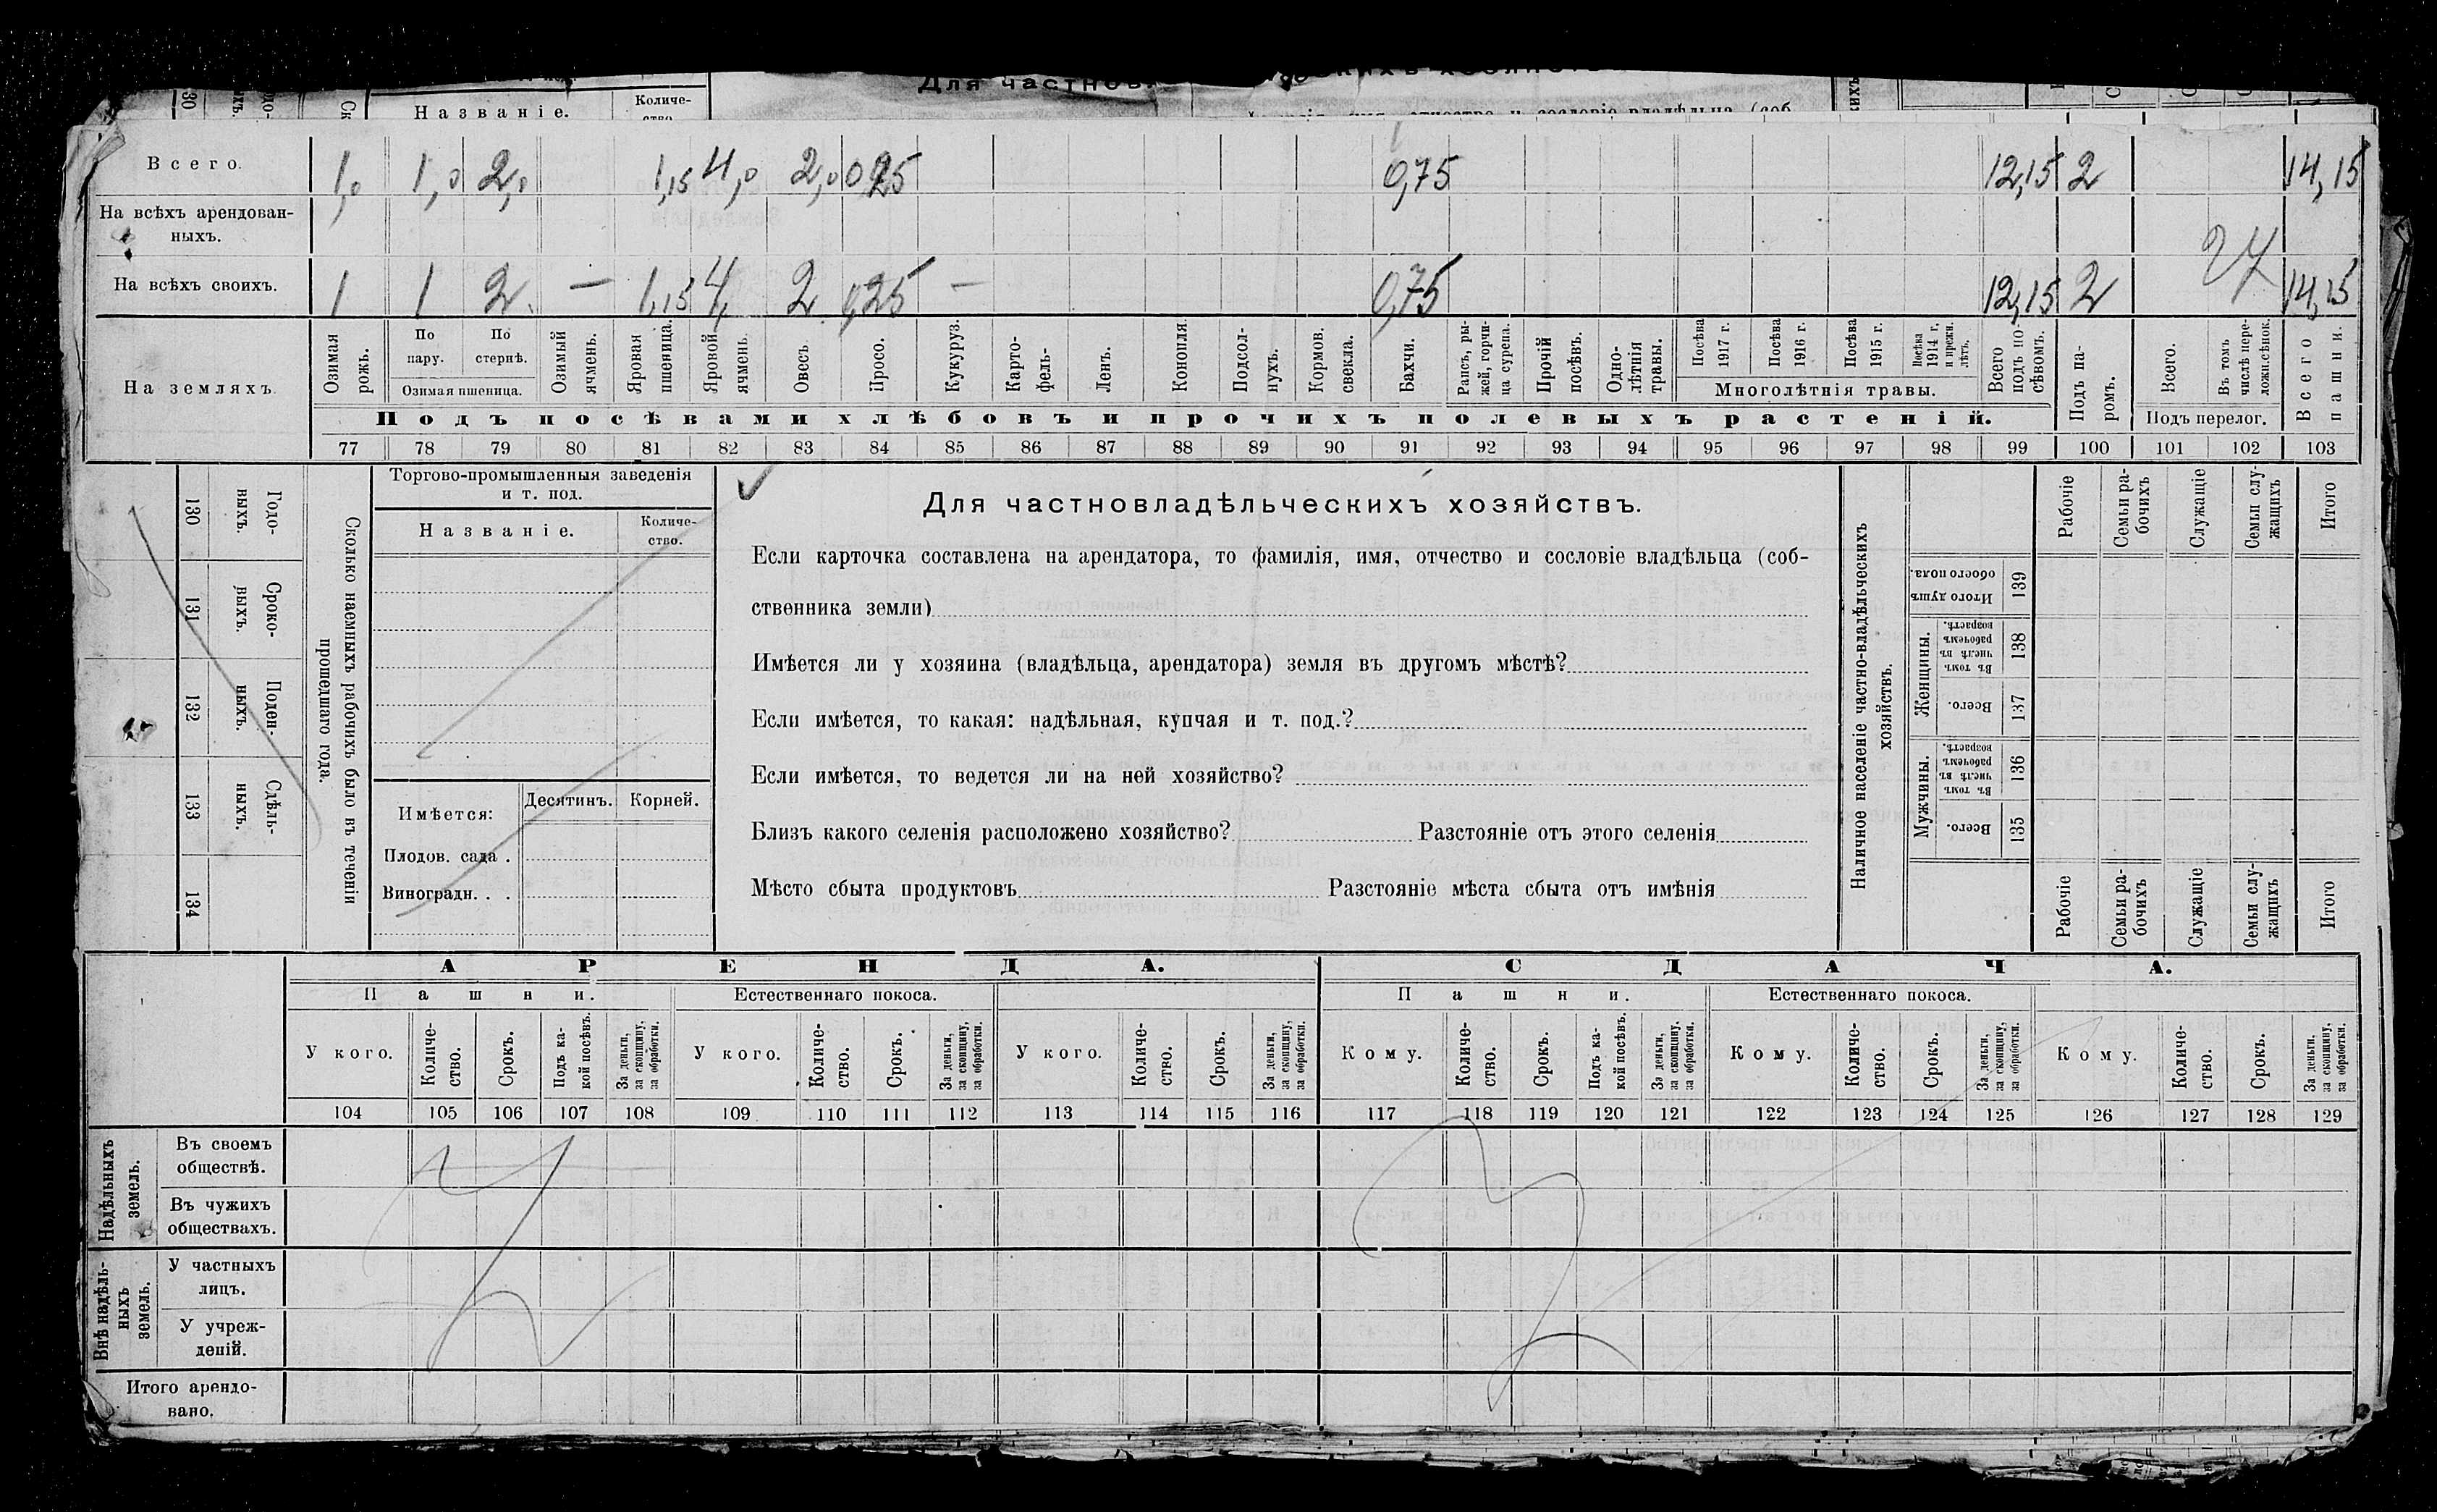 Названіе.
Количе-
ство.
Всего.
1,0 1,0 2,0 1,15 4,0 2,0 0,25 0,75 12,15 2 14,15
На всѣхъ арендован-
ныхъ.
На всѣхъ своихъ.
1 1 2 — 1,15 4, 2 0,25 — 0,75 12,15 2 14,15
На земляхъ.
Озимая рожь.
По пару.
По стернѣ.
Озимая пшеница.
Озимый ячмень.
Яровая пшеница.
Яровой ячмень.
Овесъ.
Просо.
Кукуруз.
Карто-
фель-
Ленъ.
Конопля.
Подсол-
нухъ.
Кормов. свекла.
Бахчи.
Рапсъ, ры-
жей, горчи-
ца сурепа.
Прочій посѣвъ.
Одно-
лѣтнія травы.
Посѣва 1917 г.
Посѣва 1916 г.
Посѣва 1915 г.
Посѣва 1914 г. и прежн. лѣтъ.
Многолѣтнія травы.
Всего подъ по-
сѣвомъ.
Подъ па-
ромъ.
Всего.
Въ томъ числѣ пере-
ложн.сѣнок.
Подъ перелог.
Всего пашни.
Подъ посѣвами хлѣбовъ и прочихъ полевыхъ растеній.
77 78 79 80 81 82 83 84 85 86 87 88 89 90 91 92 93 94 95 96 97 98 99 100 101 102 103
Сколько наемныхъ рабочихъ было въ теченіи
прошедшаго года.
Годо-
выхъ.
130
Сроко-
выхъ.
131
Поден-
ныхъ.
132
Сдѣль-
ныхъ.
133
134
Торгово-промышленныя заведенія
и т. под.
Названіе.
Количе-
ство.
Имѣется:
Десятинъ.
Корней.
Плодов. сада .
Виноградн. . .
Для частновладѣльческихъ хозяйствъ.
Если карточка составлена на арендатора, то фамилія, имя, отчество и сословіе владѣльца (соб-
ственника земли)
Имѣется ли у хозяина (владѣльца, арендатора) земля въ другомъ мѣстѣ?
Если имѣется, то какая: надѣльная, купчая и т. под.?
Если имѣется, то ведется ли на ней хозяйство?
Близъ какого селенія расположено хозяйство? Разстояніе отъ этого селенія
Мѣсто сбыта продуктовъ Разстояніе мѣста сбыта отъ имѣнія
Наличное населеніе частно-владѣльческихъ
хозяйствъ.
Рабочіе
Семьи ра-
бочихъ
Служащіе
Семьи слу-
жащихъ
Итого
Итого душъ обоего пола.
139
Женщины.
Въ томъ числѣ въ рабочемъ возрастѣ.
138
Всего.
137
Мужчины.
Въ томъ числѣ въ рабочемъ возрастѣ.
136
Всего.
135
Рабочіе
Семьи ра-
бочихъ
Служащіе
Семьи слу-
жащихъ
Итого
АРЕНДА.
СДАЧА.
Пашни.
Естественнаго покоса.
Пашни.
Естественнаго покоса.
У кого.
Количе-
ство.
Срокъ.
Подъ ка-
кой посѣвъ.
За деньги, за скопщину, за обработки.
У кого.
Количе-
ство.
Срокъ.
За деньги, за скопщину, за обработки.
У кого.
Количе-
ство.
Срокъ.
За деньги, за скопщину, за обработки.
Кому.
Количе-
ство.
Срокъ.
Подъ ка-
кой посѣвъ.
За деньги, за скопщину, за обработки.
Кому.
Количе-
ство.
Срокъ.
За деньги, за скопщину, за обработки.
Кому.
Количе-
ство.
Срокъ.
За деньги, за скопщину, за обработки.
104 105 106 107 108 109 110 111 112 113 114 115 116 117 118 119 120 121 122 123 124 125 126 127 128 129
Надѣльныхъ земель.
Въ своемъ
обществѣ.
Въ чужихъ
обществахъ.
Внѣ надѣль-
ныхъ земель.
У частныхъ
лицъ.
У учреж-
деній.
Итого арендо-
вано.